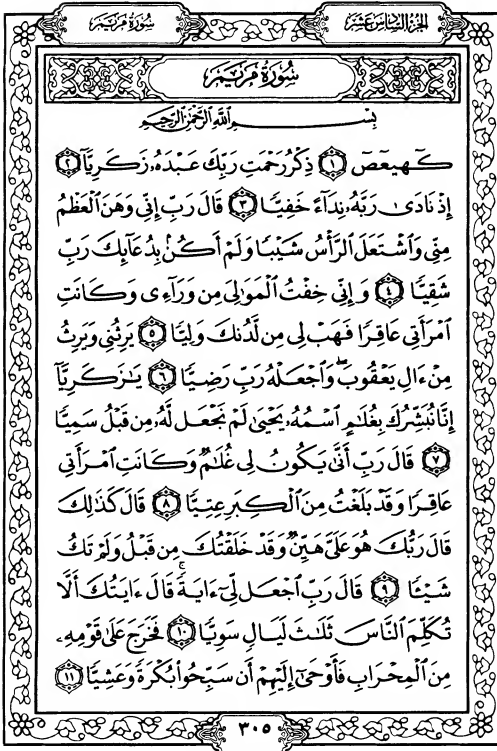 سُورَةُ مَرْيَم
الجُزْءُ السَّادِسَ عَشَرَ
سُورَةُ مَرْيَمَ
بِسْمِ ٱللَّهِ ٱلرَّحْمَٰنِ ٱلرَّحِيمِ
كٓهيعٓصٓ ١ ذِكْرُ رَحْمَتِ رَبِّكَ عَبْدَهُۥ زَكَرِيَّآ ٢
إِذْ نَادَىٰ رَبَّهُۥ نِدَآءً خَفِيًّا ٣ قَالَ رَبِّ إِنِّى وَهَنَ ٱلْعَظْمُ
مِنِّى وَٱشْتَعَلَ ٱلرَّأْسُ شَيْبًا وَلَمْ أَكُنۢ بِدُعَآئِكَ رَبِّ
شَقِيًّا ٤ وَإِنِّى خِفْتُ ٱلْمَوَٰلِىَ مِن وَرَآءِى وَكَانَتِ
ٱمْرَأَتِى عَاقِرًا فَهَبْ لِى مِن لَّدُنكَ وَلِيًّا ٥ يَرِثُنِى وَيَرِثُ
مِنْ ءَالِ يَعْقُوبَ ۖ وَٱجْعَلْهُ رَبِّ رَضِيًّا ٦ يَٰزَكَرِيَّآ
إِنَّا نُبَشِّرُكَ بِغُلَٰمٍ ٱسْمُهُۥ يَحْيَىٰ لَمْ نَجْعَل لَّهُۥ مِن قَبْلُ سَمِيًّا
٧ قَالَ رَبِّ أَنَّىٰ يَكُونُ لِى غُلَٰمٌ وَكَانَتِ ٱمْرَأَتِى
عَاقِرًا وَقَدْ بَلَغْتُ مِنَ ٱلْكِبَرِ عِتِيًّا ٨ قَالَ كَذَٰلِكَ
قَالَ رَبُّكَ هُوَ عَلَىَّ هَيِّنٌ وَقَدْ خَلَقْتُكَ مِن قَبْلُ وَلَمْ تَكُ
شَيْـًٔا ٩ قَالَ رَبِّ ٱجْعَل لِّىٓ ءَايَةً ۚ قَالَ ءَايَتُكَ أَلَّا
تُكَلِّمَ ٱلنَّاسَ ثَلَٰثَ لَيَالٍ سَوِيًّا ١٠ فَخَرَجَ عَلَىٰ قَوْمِهِۦ
مِنَ ٱلْمِحْرَابِ فَأَوْحَىٰٓ إِلَيْهِمْ أَن سَبِّحُوا۟ بُكْرَةً وَعَشِيًّا ١١
٣٠٥